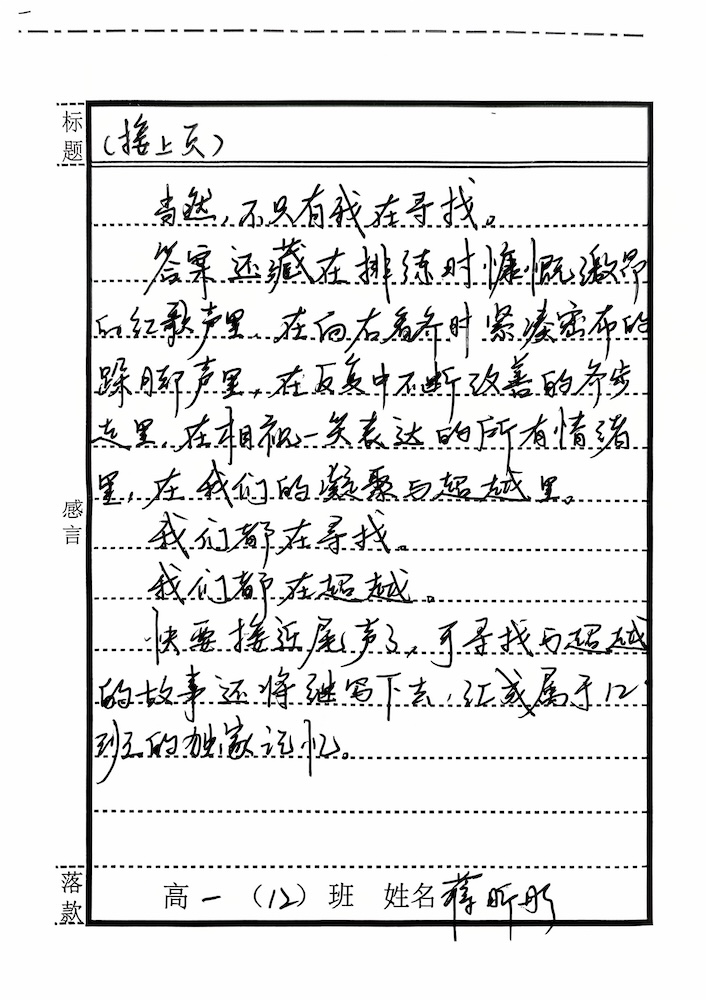 标题
（接上页）
当然，不只有我在寻找。
答案还藏在排练时慷慨激昂
的红歌声里，在向右看齐时紧凑密布的
跺脚声里，在反复中不断改善的齐步
走里，在相视一笑表达的所有情绪
里，在我们的凝聚与超越里。
感言
我们都在寻找。
我们都在超越。
快要接近尾声了，可寻找与超越
的故事还将继写下去，汇成属于12
班的独家记忆。
落款
高一（12）班 姓名 蒋昕彤